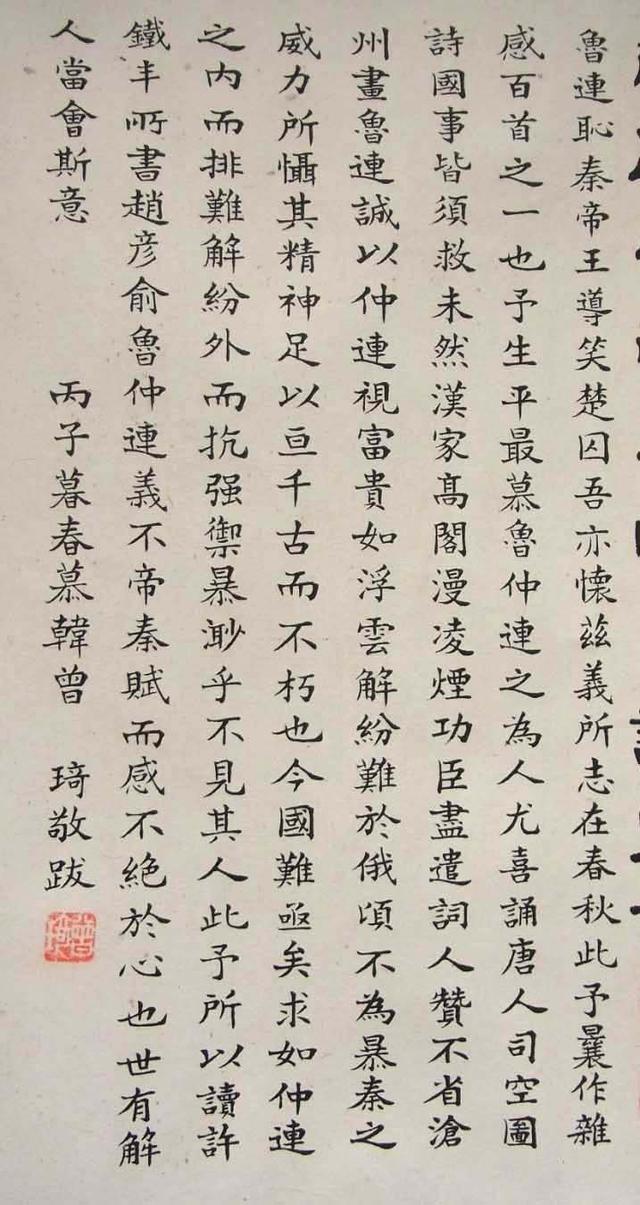 魯連恥秦帝王導笑楚囚吾亦懷茲義所志在春秋此予曩作雜
感百首之一也予生平最慕魯仲連之為人尤喜誦唐人司空圖
詩國事皆須救未然漢家高閣漫凌煙功臣盡遣詞人贊不省滄
州畫魯連誠以仲連視富貴如浮雲解紛難於俄頃不為暴秦之
威力所懾其精神足以亘千古而不朽也今國難亟矣求如仲連
之内而排難解紛外而抗强禦暴渺乎不見其人此予所以讀許
鐵丰所書趙彦俞魯仲連義不帝秦賦而感不絕於心也世有解
人當會斯意
丙子暮春慕韓曾琦敬跋
曾琦